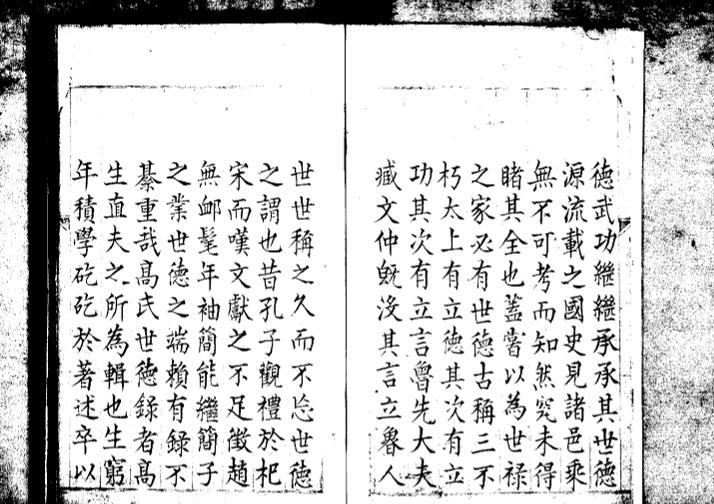 德武功繼繼承承其世德
源流載之國史見諸邑乘
無不可考而知然究未得
睹其全也蓋嘗以為世禄
之家必有世德古稱三不
朽太上有立德其次有立
功其次有立言魯先大夫
臧文仲旣没其言立魯人
世世稱之久而不忘世德
之謂也昔孔子觀禮於杞
宋而嘆文獻之不足徵趙
無卹髦年袖簡能繼簡子
之業世德之端賴有録不
綦重哉高氏世德録者高
生直夫之所為輯也生窮
年積學矻矻於著述卒以